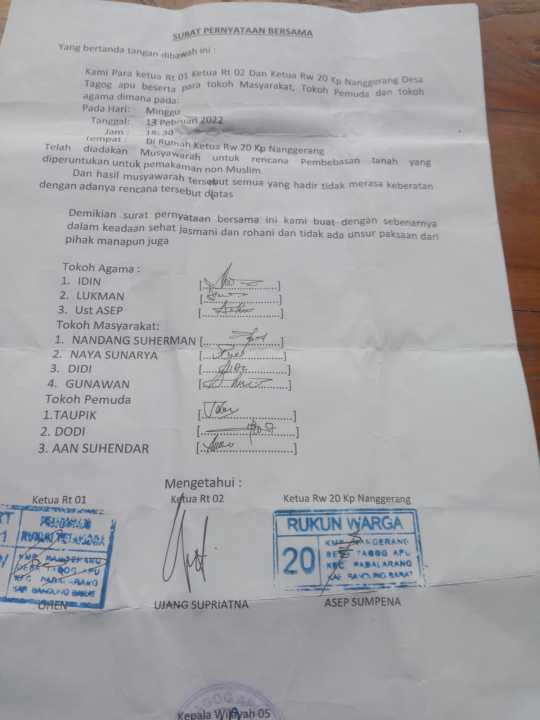 SURAT PERNYATAAN BERSAMA
Yang bertanda tangan dibawah ini :
Kami Para ketua Rt 01 Ketua Rt 02 Dan Ketua Rw 20 Kp Nanggerang Desa
Tagog apu beserta para tokoh Masyarakat, Tokoh Pemuda dan tokoh
agama dimana pada:
Pada Hari: Minggu
Tanggal: 13 Pebruari 2022
Jam :
Tempat : Di Rumah Ketua Rw 20 Kp Nanggerang
Telah diadakan Musyawarah untuk rencana Pembebasan tanah yang
diperuntukan untuk pemakaman non Muslim.
Dan hasil musyawarah tersebut semua yang hadir tidak merasa keberatan
dengan adanya rencana tersebut diatas
Demikian surat pernyataan bersama ini kami buat dengan sebenarnya
dalam keadaan sehat jasmani dan rohani dan tidak ada unsur paksaan dari
pihak manapun juga
Tokoh Agama :
1. IDIN
2. LUKMAN
3. Ust ASEP
Tokoh Masyarakat:
1. NANDANG SUHERMAN
2. NAYA SUNARYA
3. DIDI
4. GUNAWAN
Tokoh Pemuda
1.TAUPIK
2. DODI
3. AAN SUHENDAR
Mengetahui :
Ketua Rt 01 Ketua Rt 02 Ketua Rw 20 Kp Nanggerang
RUKUN WARGA
20
TAGOG APU
KEC PADALARANG
KAB BANDUNG BARAT
OHEN UJANG SUPRIATNA ASEP SUMPENA
Kepala Wilayah 05